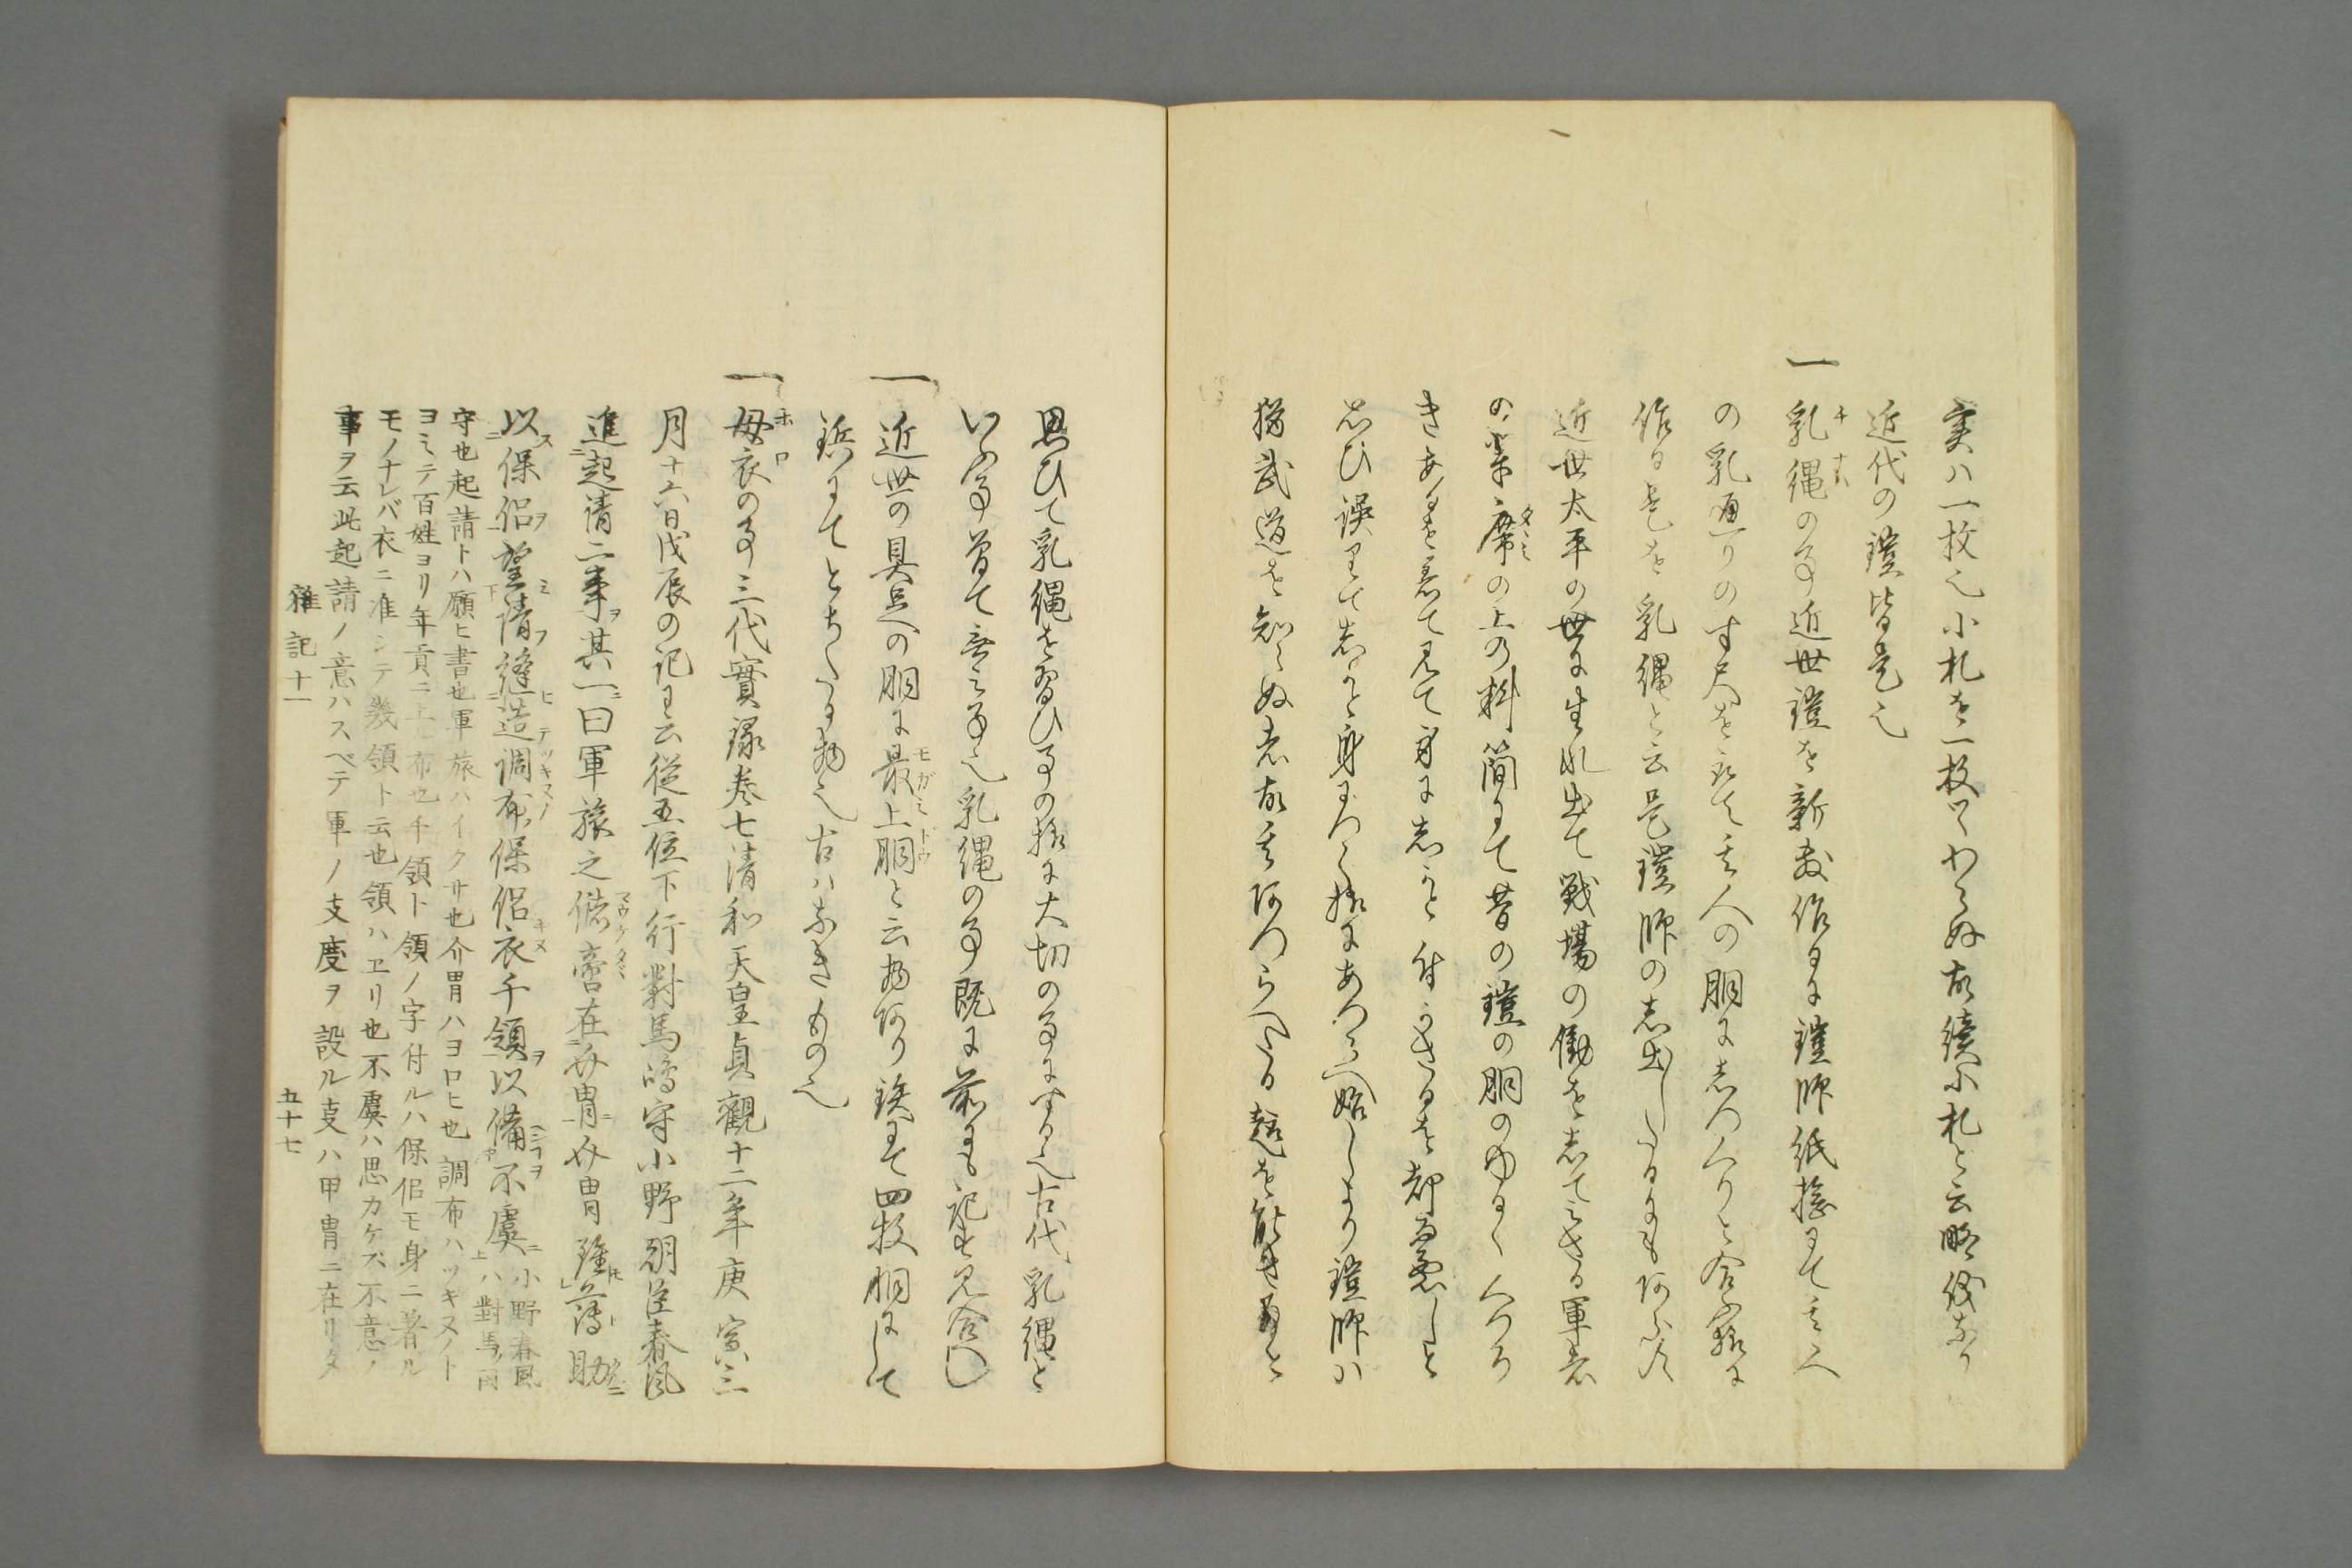 実ハ一枚也小札を一枚つゝわらぬ故続小札と云略儀なり
近代の鎧皆是也
一乳縄の事近世鎧を新敷作るに鎧師紙捻にて其人
の乳通りのすん尺を取て其人の胴にしつくりと合ふ様に
作る是を乳縄と云是鎧師の志出したるにも阿らす
近世太平の世に生れ出て戦場の働を志てミさる軍者
の業席の上の料簡にて昔の鎧の胴のゆるくくつろ
きあるを着て見て身にしかと付かさるを却而悪しと
思ひ誤りてしかと身につく様にあつらへ始しより鎧師ハ
猶武道を知らぬ者故其阿つらへたる趣を能き事と
思ひて乳縄を習ひ事の様に大切の事にする也古代乳縄と
いふ事曽て無之事也乳縄の事既に前にも記せり見合へし
一近世の具足の胴に最上胴と云物阿り鉄にて四枚胴にして
鋲にてとちたる物也古ハなきもの也
一母衣の事三代實録巻七清和天皇貞觀十二年庚寅三
月十六日戊辰の記に云従五位下行對馬嶋守小野朝臣春風
進起請二事其一曰軍旅之儲啻在介冑介冑雖薄助
以保侶望請縫造調布保侶衣千領以備不虞小野春風
ハ對馬ノ国
守也起請トハ願ヒ書也軍旅ハイクサ也介冑ハヨロヒ也調布ハツキヌノト
ヨミテ百姓ヨリ年貢ニ上ル布也千領ト領ノ字付ルハ保侶モ身ニ着ル
モノナレバ衣ニ准シテ幾領ト云也領ハヱリ也不虞ハ思カケズ不意ノ
事ヲ云此起請ノ意ハスベテ軍ノ支度ヲ設ル支ハ甲冑ニ在リタ
雜記十一
五十七